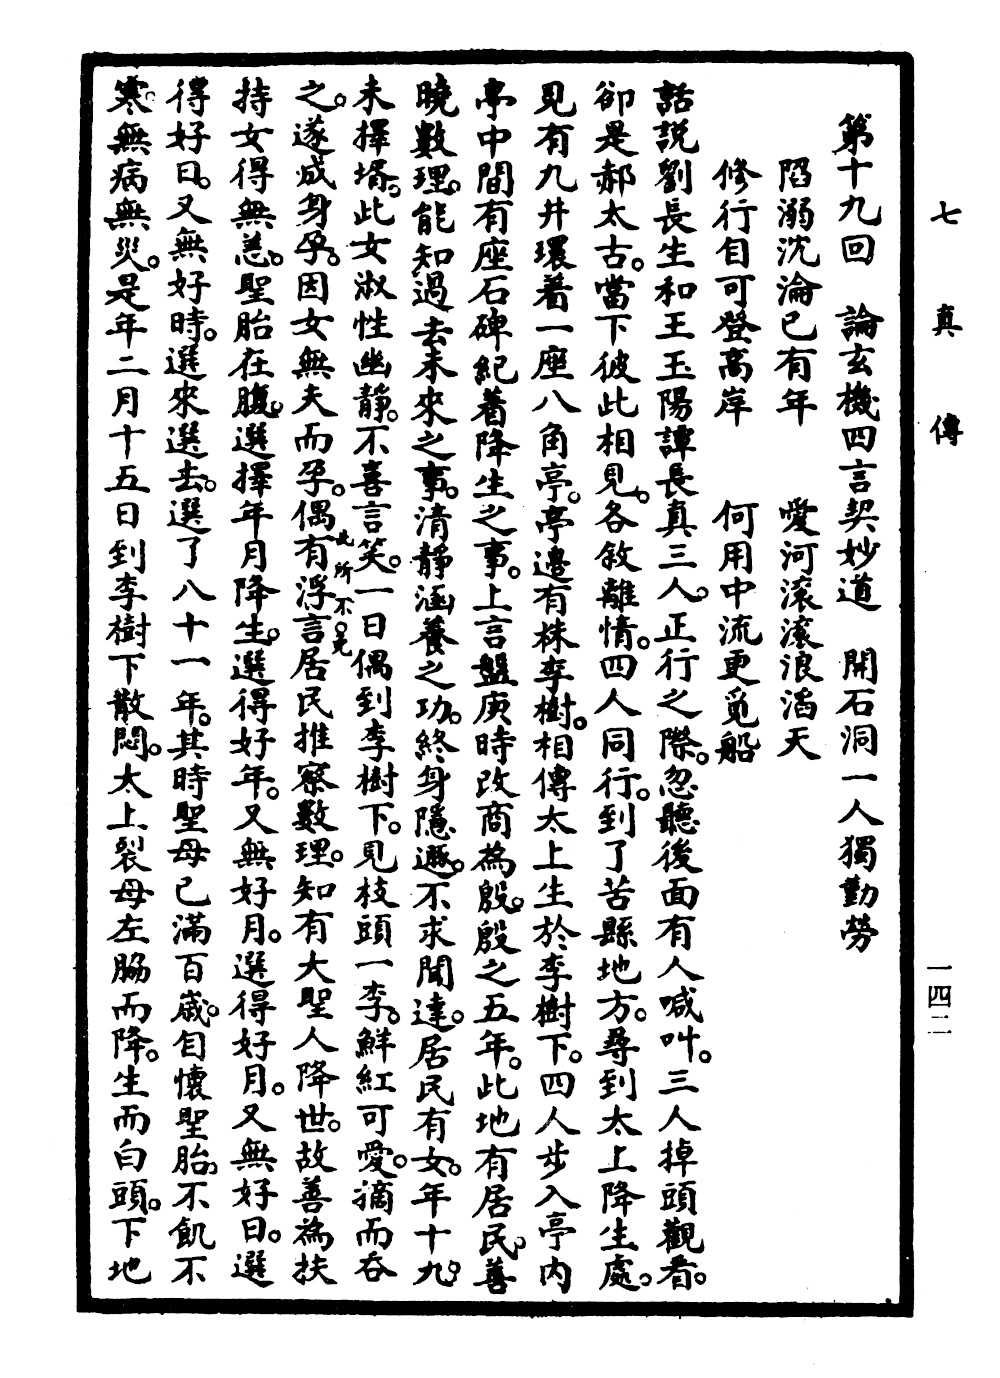 七真傳
一四二
第十九回　論玄機四言契妙道　開石洞一人獨勤勞
陷溺沈淪已有年　愛河滾滾浪滔天
修行自可登高岸　何用中流更覓船
話說劉長生和王玉陽譚長真三人。正行之際。忽聽後面有人喊叫。三人掉頭觀看。
卻是郝太古。當下彼此相見。各敘離情。四人同行。到了苦縣地方。尋到太上降生處。
見有九井環着一座八角亭。亭邊有株李樹。相傳太上生於李樹下。四人步入亭內
亭中間有座石碑紀着降生之事。上言盤庚時改商為殷。殷之五年。此地有居民。善
曉數理。能知過去未來之事。清靜涵養之功。終身隱遯。不求聞達。居民有女。年十九。
未擇壻。此女淑性幽靜。不喜言笑。一日偶到李樹下。見枝頭一李。鮮紅可愛。摘而吞
之。遂成身孕。因女無夫而孕。偶有浮言此所不免。居民推察數理。知有大聖人降世。故善為扶
持女得無恙。聖胎在腹。選擇年月降生。選得好年。又無好月。選得好月。又無好日。選
得好日。又無好時。選來選去。選了八十一年。其時聖母已滿百歲。自懷聖胎。不飢不
寒。無病無災。是年二月十五日到李樹下散悶。太上裂母左脇而降。生而白頭。下地